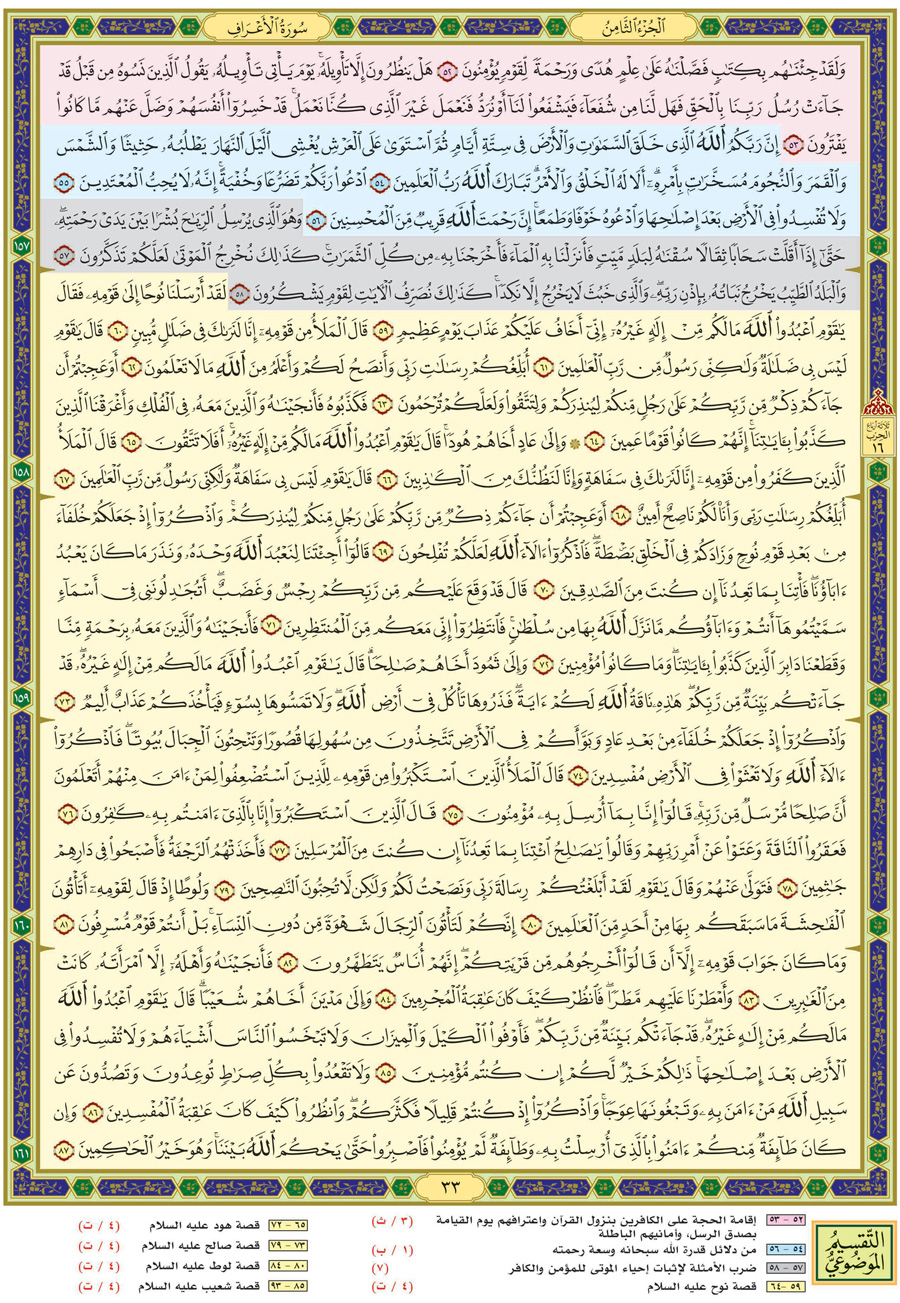 سُورَةُ الْأَعْرَافِ
الْجُزْءُ الثَّامِنُ
وَلَقَدْ جِئْنَاهُم بِكِتَابٍ فَصَّلْنَاهُ عَلَىٰ عِلْمٍ هُدًى وَرَحْمَةً لِّقَوْمٍ يُؤْمِنُونَ ٥٢ هَلْ يَنظُرُونَ إِلَّا تَأْوِيلَهُ ۚ يَوْمَ يَأْتِي تَأْوِيلُهُ يَقُولُ الَّذِينَ نَسُوهُ مِن قَبْلُ قَدْ
جَاءَتْ رُسُلُ رَبِّنَا بِالْحَقِّ فَهَل لَّنَا مِن شُفَعَاءَ فَيَشْفَعُوا لَنَا أَوْ نُرَدُّ فَنَعْمَلَ غَيْرَ الَّذِي كُنَّا نَعْمَلُ ۚ قَدْ خَسِرُوا أَنفُسَهُمْ وَضَلَّ عَنْهُم مَّا كَانُوا
يَفْتَرُونَ ٥٣ إِنَّ رَبَّكُمُ اللَّهُ الَّذِي خَلَقَ السَّمَاوَاتِ وَالْأَرْضَ فِي سِتَّةِ أَيَّامٍ ثُمَّ اسْتَوَىٰ عَلَى الْعَرْشِ يُغْشِي اللَّيْلَ النَّهَارَ يَطْلُبُهُ حَثِيثًا وَالشَّمْسَ
وَالْقَمَرَ وَالنُّجُومَ مُسَخَّرَاتٍ بِأَمْرِهِ ۗ أَلَا لَهُ الْخَلْقُ وَالْأَمْرُ ۗ تَبَارَكَ اللَّهُ رَبُّ الْعَالَمِينَ ٥٤ ادْعُوا رَبَّكُمْ تَضَرُّعًا وَخُفْيَةً ۚ إِنَّهُ لَا يُحِبُّ الْمُعْتَدِينَ ٥٥
وَلَا تُفْسِدُوا فِي الْأَرْضِ بَعْدَ إِصْلَاحِهَا وَادْعُوهُ خَوْفًا وَطَمَعًا ۚ إِنَّ رَحْمَتَ اللَّهِ قَرِيبٌ مِّنَ الْمُحْسِنِينَ ٥٦ وَهُوَ الَّذِي يُرْسِلُ الرِّيَاحَ بُشْرًا بَيْنَ يَدَيْ رَحْمَتِهِ ۖ
حَتَّىٰ إِذَا أَقَلَّتْ سَحَابًا ثِقَالًا سُقْنَاهُ لِبَلَدٍ مَّيِّتٍ فَأَنزَلْنَا بِهِ الْمَاءَ فَأَخْرَجْنَا بِهِ مِن كُلِّ الثَّمَرَاتِ ۚ كَذَٰلِكَ نُخْرِجُ الْمَوْتَىٰ لَعَلَّكُمْ تَذَكَّرُونَ ٥٧
وَالْبَلَدُ الطَّيِّبُ يَخْرُجُ نَبَاتُهُ بِإِذْنِ رَبِّهِ ۖ وَالَّذِي خَبُثَ لَا يَخْرُجُ إِلَّا نَكِدًا ۚ كَذَٰلِكَ نُصَرِّفُ الْآيَاتِ لِقَوْمٍ يَشْكُرُونَ ٥٨ لَقَدْ أَرْسَلْنَا نُوحًا إِلَىٰ قَوْمِهِ فَقَالَ
يَا قَوْمِ اعْبُدُوا اللَّهَ مَا لَكُم مِّنْ إِلَٰهٍ غَيْرُهُ إِنِّي أَخَافُ عَلَيْكُمْ عَذَابَ يَوْمٍ عَظِيمٍ ٥٩ قَالَ الْمَلَأُ مِن قَوْمِهِ إِنَّا لَنَرَاكَ فِي ضَلَالٍ مُّبِينٍ ٦٠ قَالَ يَا قَوْمِ
لَيْسَ بِي ضَلَالَةٌ وَلَٰكِنِّي رَسُولٌ مِّن رَّبِّ الْعَالَمِينَ ٦١ أُبَلِّغُكُمْ رِسَالَاتِ رَبِّي وَأَنصَحُ لَكُمْ وَأَعْلَمُ مِنَ اللَّهِ مَا لَا تَعْلَمُونَ ٦٢ أَوَعَجِبْتُمْ أَن
جَاءَكُمْ ذِكْرٌ مِّن رَّبِّكُمْ عَلَىٰ رَجُلٍ مِّنكُمْ لِيُنذِرَكُمْ وَلِتَتَّقُوا وَلَعَلَّكُمْ تُرْحَمُونَ ٦٣ فَكَذَّبُوهُ فَأَنجَيْنَاهُ وَالَّذِينَ مَعَهُ فِي الْفُلْكِ وَأَغْرَقْنَا الَّذِينَ
كَذَّبُوا بِآيَاتِنَا ۚ إِنَّهُمْ كَانُوا قَوْمًا عَمِينَ ٦٤ ۞ وَإِلَىٰ عَادٍ أَخَاهُمْ هُودًا ۗ قَالَ يَا قَوْمِ اعْبُدُوا اللَّهَ مَا لَكُم مِّنْ إِلَٰهٍ غَيْرُهُ ۚ أَفَلَا تَتَّقُونَ ٦٥ قَالَ الْمَلَأُ
الَّذِينَ كَفَرُوا مِن قَوْمِهِ إِنَّا لَنَرَاكَ فِي سَفَاهَةٍ وَإِنَّا لَنَظُنُّكَ مِنَ الْكَاذِبِينَ ٦٦ قَالَ يَا قَوْمِ لَيْسَ بِي سَفَاهَةٌ وَلَٰكِنِّي رَسُولٌ مِّن رَّبِّ الْعَالَمِينَ ٦٧
أُبَلِّغُكُمْ رِسَالَاتِ رَبِّي وَأَنَا لَكُمْ نَاصِحٌ أَمِينٌ ٦٨ أَوَعَجِبْتُمْ أَن جَاءَكُمْ ذِكْرٌ مِّن رَّبِّكُمْ عَلَىٰ رَجُلٍ مِّنكُمْ لِيُنذِرَكُمْ ۚ وَاذْكُرُوا إِذْ جَعَلَكُمْ خُلَفَاءَ
مِن بَعْدِ قَوْمِ نُوحٍ وَزَادَكُمْ فِي الْخَلْقِ بَصْطَةً ۖ فَاذْكُرُوا آلَاءَ اللَّهِ لَعَلَّكُمْ تُفْلِحُونَ ٦٩ قَالُوا أَجِئْتَنَا لِنَعْبُدَ اللَّهَ وَحْدَهُ وَنَذَرَ مَا كَانَ يَعْبُدُ
آبَاؤُنَا ۖ فَأْتِنَا بِمَا تَعِدُنَا إِن كُنتَ مِنَ الصَّادِقِينَ ٧٠ قَالَ قَدْ وَقَعَ عَلَيْكُم مِّن رَّبِّكُمْ رِجْسٌ وَغَضَبٌ ۖ أَتُجَادِلُونَنِي فِي أَسْمَاءٍ
سَمَّيْتُمُوهَا أَنتُمْ وَآبَاؤُكُم مَّا نَزَّلَ اللَّهُ بِهَا مِن سُلْطَانٍ ۚ فَانتَظِرُوا إِنِّي مَعَكُم مِّنَ الْمُنتَظِرِينَ ٧١ فَأَنجَيْنَاهُ وَالَّذِينَ مَعَهُ بِرَحْمَةٍ مِّنَّا
وَقَطَعْنَا دَابِرَ الَّذِينَ كَذَّبُوا بِآيَاتِنَا ۖ وَمَا كَانُوا مُؤْمِنِينَ ٧٢ وَإِلَىٰ ثَمُودَ أَخَاهُمْ صَالِحًا ۗ قَالَ يَا قَوْمِ اعْبُدُوا اللَّهَ مَا لَكُم مِّنْ إِلَٰهٍ غَيْرُهُ ۖ قَدْ
جَاءَتْكُم بَيِّنَةٌ مِّن رَّبِّكُمْ ۖ هَٰذِهِ نَاقَةُ اللَّهِ لَكُمْ آيَةً ۖ فَذَرُوهَا تَأْكُلْ فِي أَرْضِ اللَّهِ ۖ وَلَا تَمَسُّوهَا بِسُوءٍ فَيَأْخُذَكُمْ عَذَابٌ أَلِيمٌ ٧٣
وَاذْكُرُوا إِذْ جَعَلَكُمْ خُلَفَاءَ مِن بَعْدِ عَادٍ وَبَوَّأَكُمْ فِي الْأَرْضِ تَتَّخِذُونَ مِن سُهُولِهَا قُصُورًا وَتَنْحِتُونَ الْجِبَالَ بُيُوتًا ۖ فَاذْكُرُوا
آلَاءَ اللَّهِ وَلَا تَعْثَوْا فِي الْأَرْضِ مُفْسِدِينَ ٧٤ قَالَ الْمَلَأُ الَّذِينَ اسْتَكْبَرُوا مِن قَوْمِهِ لِلَّذِينَ اسْتُضْعِفُوا لِمَنْ آمَنَ مِنْهُمْ أَتَعْلَمُونَ
أَنَّ صَالِحًا مُّرْسَلٌ مِّن رَّبِّهِ ۚ قَالُوا إِنَّا بِمَا أُرْسِلَ بِهِ مُؤْمِنُونَ ٧٥ قَالَ الَّذِينَ اسْتَكْبَرُوا إِنَّا بِالَّذِي آمَنتُم بِهِ كَافِرُونَ ٧٦
فَعَقَرُوا النَّاقَةَ وَعَتَوْا عَنْ أَمْرِ رَبِّهِمْ وَقَالُوا يَا صَالِحُ ائْتِنَا بِمَا تَعِدُنَا إِن كُنتَ مِنَ الْمُرْسَلِينَ ٧٧ فَأَخَذَتْهُمُ الرَّجْفَةُ فَأَصْبَحُوا فِي دَارِهِمْ
جَاثِمِينَ ٧٨ فَتَوَلَّىٰ عَنْهُمْ وَقَالَ يَا قَوْمِ لَقَدْ أَبْلَغْتُكُمْ رِسَالَةَ رَبِّي وَنَصَحْتُ لَكُمْ وَلَٰكِن لَّا تُحِبُّونَ النَّاصِحِينَ ٧٩ وَلُوطًا إِذْ قَالَ لِقَوْمِهِ أَتَأْتُونَ
الْفَاحِشَةَ مَا سَبَقَكُم بِهَا مِنْ أَحَدٍ مِّنَ الْعَالَمِينَ ٨٠ إِنَّكُمْ لَتَأْتُونَ الرِّجَالَ شَهْوَةً مِّن دُونِ النِّسَاءِ ۚ بَلْ أَنتُمْ قَوْمٌ مُّسْرِفُونَ ٨١
وَمَا كَانَ جَوَابَ قَوْمِهِ إِلَّا أَن قَالُوا أَخْرِجُوهُم مِّن قَرْيَتِكُمْ ۖ إِنَّهُمْ أُنَاسٌ يَتَطَهَّرُونَ ٨٢ فَأَنجَيْنَاهُ وَأَهْلَهُ إِلَّا امْرَأَتَهُ كَانَتْ
مِنَ الْغَابِرِينَ ٨٣ وَأَمْطَرْنَا عَلَيْهِم مَّطَرًا ۖ فَانظُرْ كَيْفَ كَانَ عَاقِبَةُ الْمُجْرِمِينَ ٨٤ وَإِلَىٰ مَدْيَنَ أَخَاهُمْ شُعَيْبًا ۗ قَالَ يَا قَوْمِ اعْبُدُوا اللَّهَ
مَا لَكُم مِّنْ إِلَٰهٍ غَيْرُهُ ۖ قَدْ جَاءَتْكُم بَيِّنَةٌ مِّن رَّبِّكُمْ ۖ فَأَوْفُوا الْكَيْلَ وَالْمِيزَانَ وَلَا تَبْخَسُوا النَّاسَ أَشْيَاءَهُمْ وَلَا تُفْسِدُوا فِي
الْأَرْضِ بَعْدَ إِصْلَاحِهَا ۚ ذَٰلِكُمْ خَيْرٌ لَّكُمْ إِن كُنتُم مُّؤْمِنِينَ ٨٥ وَلَا تَقْعُدُوا بِكُلِّ صِرَاطٍ تُوعِدُونَ وَتَصُدُّونَ عَن
سَبِيلِ اللَّهِ مَنْ آمَنَ بِهِ وَتَبْغُونَهَا عِوَجًا ۚ وَاذْكُرُوا إِذْ كُنتُمْ قَلِيلًا فَكَثَّرَكُمْ ۖ وَانظُرُوا كَيْفَ كَانَ عَاقِبَةُ الْمُفْسِدِينَ ٨٦ وَإِن
كَانَ طَائِفَةٌ مِّنكُمْ آمَنُوا بِالَّذِي أُرْسِلْتُ بِهِ وَطَائِفَةٌ لَّمْ يُؤْمِنُوا فَاصْبِرُوا حَتَّىٰ يَحْكُمَ اللَّهُ بَيْنَنَا ۚ وَهُوَ خَيْرُ الْحَاكِمِينَ ٨٧
١٥٧
١٥٨
١٥٩
١٦٠
١٦١
ثلاثة أرباع
الحزب
١٦
٣٣
التقسيم
الموضوعي
٥٢ - ٥٣ إقامة الحجة على الكافرين بنزول القرآن واعترافهم يوم القيامة (٣ / ث)
بصدق الرسل، وأمانيهم الباطلة
٥٤ - ٥٦ من دلائل قدرة الله سبحانه وسعة رحمته (١ / ب)
٥٧ - ٥٨ ضرب الأمثلة لإثبات إحياء الموتى للمؤمن والكافر (٧)
٥٩ - ٦٤ قصة نوح عليه السلام (٤ / ت)
٦٥ - ٧٢ قصة هود عليه السلام (٤ / ت)
٧٣ - ٧٩ قصة صالح عليه السلام (٤ / ت)
٨٠ - ٨٤ قصة لوط عليه السلام (٤ / ت)
٨٥ - ٩٣ قصة شعيب عليه السلام (٤ / ت)